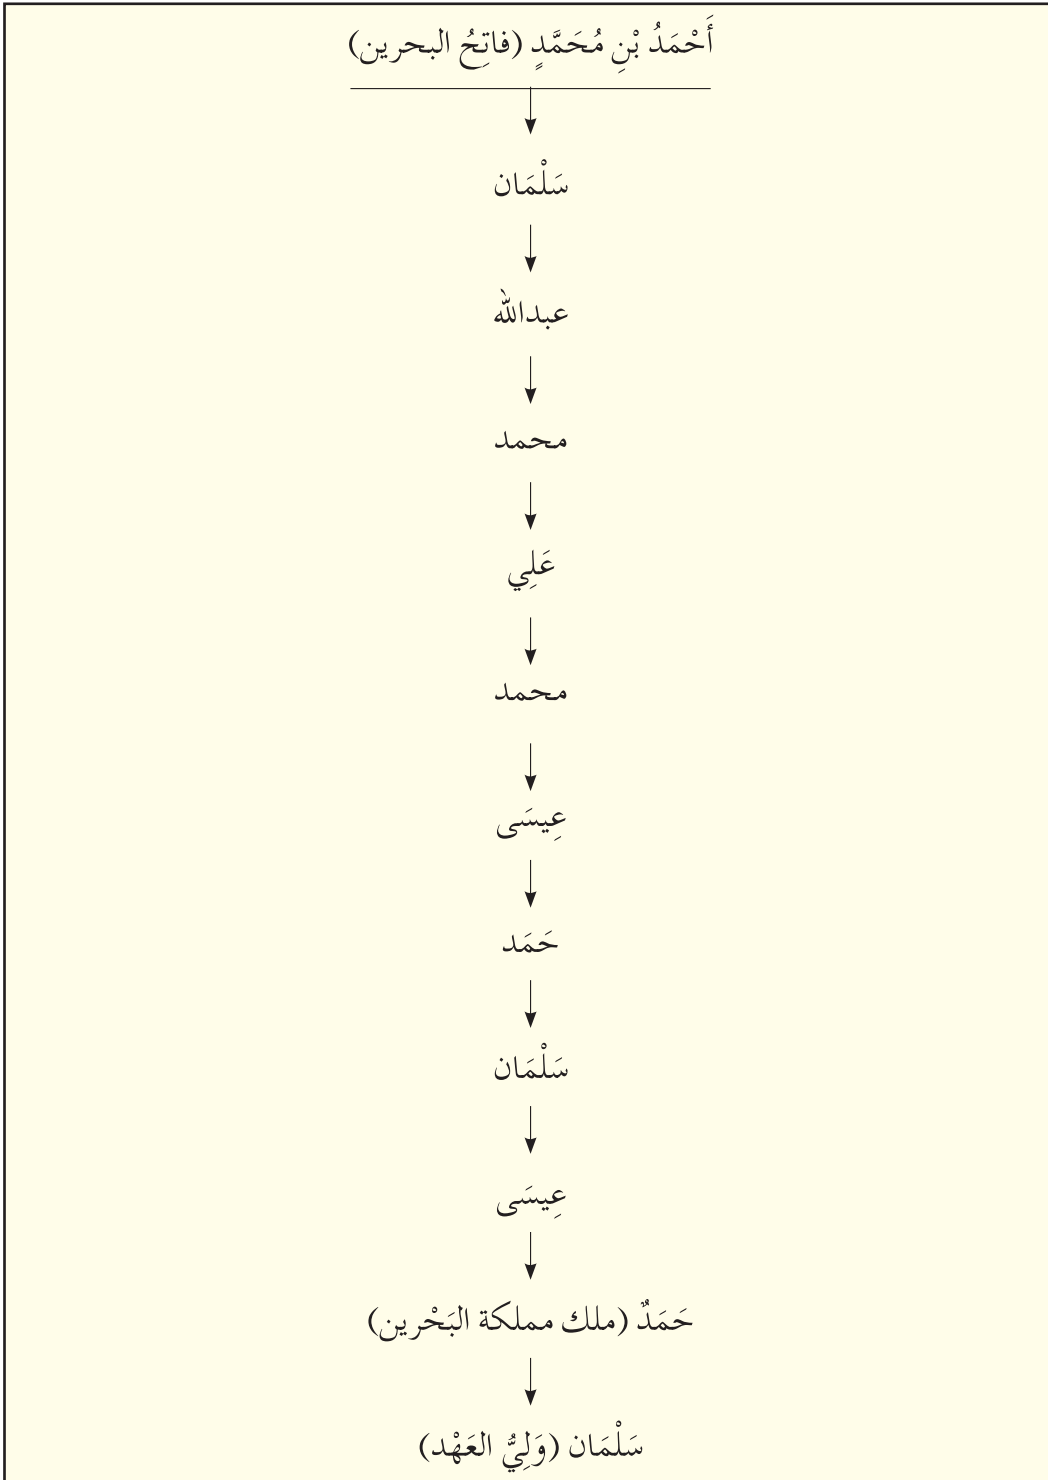 أَحْمَدُ بْنِ مُحَمَّدٍ (فاتِحُ البحرين)
سَلْمَان
عبدالله
محمد
عَلِي
محمد
عِيسَى
حَمَد
سَلْمَان
عِيسَى
حَمَدٌ (ملك مملكة البَحْرين)
سَلْمَان (وَلِيُّ العَهْد)